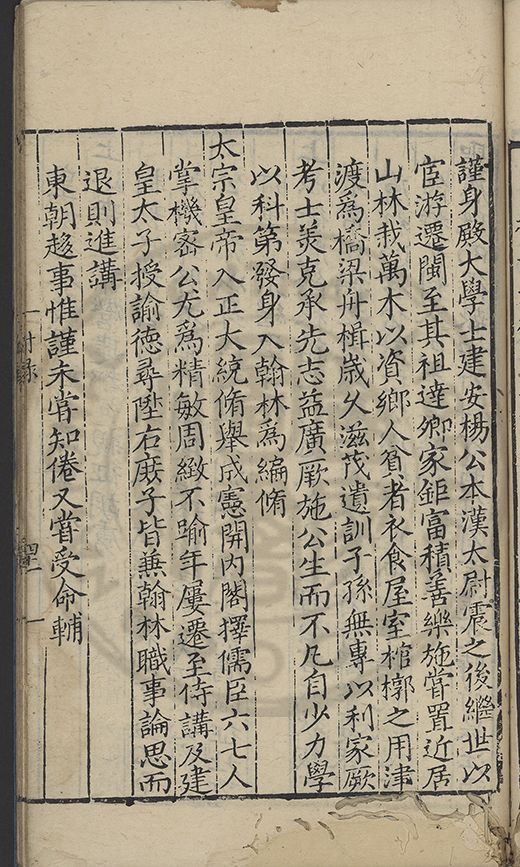 謹身殿大學士建安楊公本漢太尉震之後繼世以
宦游遷閩至其祖達卿家鉅富積善樂施嘗置近居
山林栽萬木以資鄉人貧者衣食屋室棺槨之用津
渡為橋梁舟楫歲久滋茂遺訓子孫無專以利家厥
考士美克承先志益廣厥施公生而不凡自少力學
以科第發身入翰林為編脩
太宗皇帝入正大統脩舉成憲開內閣擇儒臣六七人
掌機密公尤為精敏周緻不踰年屢遷至侍講及建
皇太子授諭德尋陞右庶子皆兼翰林職事論思而
退則進講
東朝趍事惟謹未嘗知倦又嘗受命輔
附錄